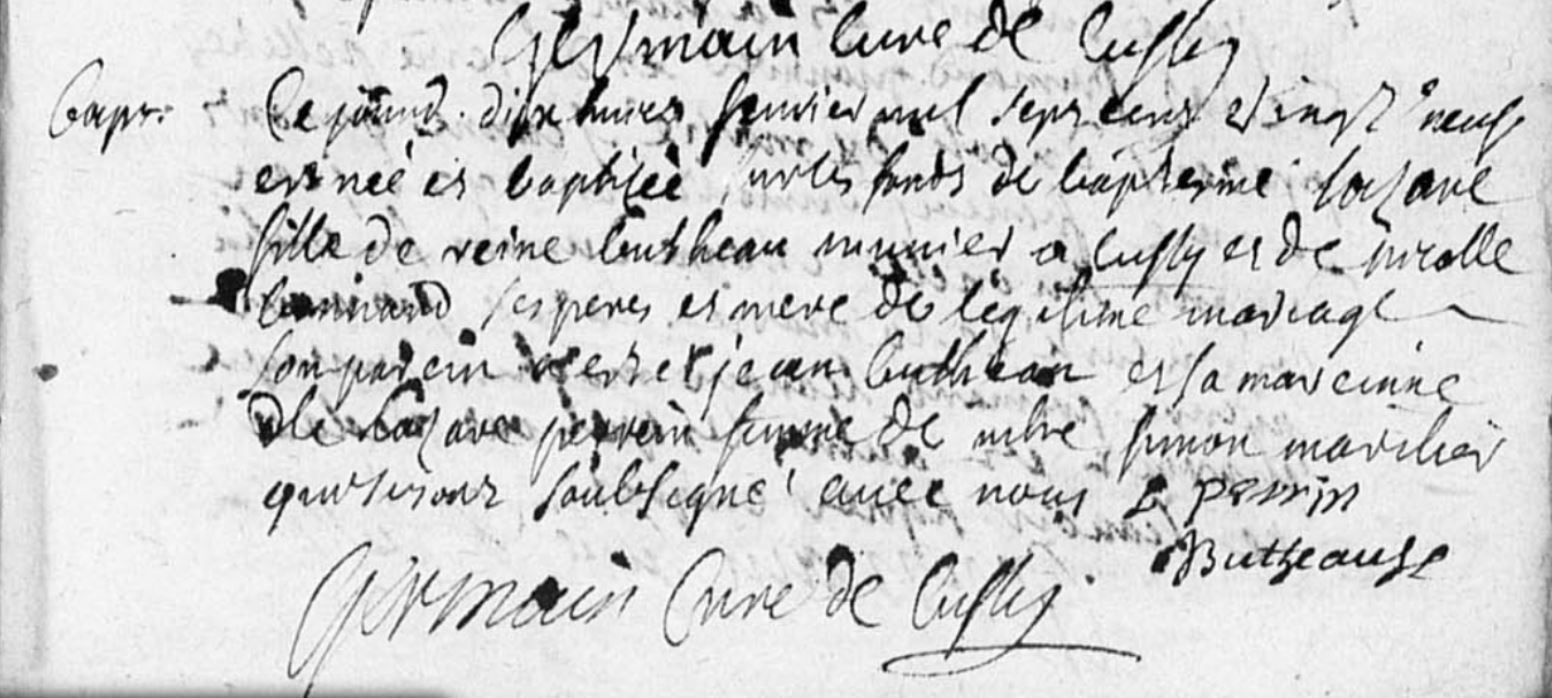 Germain Cure de Cussy
bapt.
Ce jourd. dixhuict janvier mil sept cens vingt neuf
est neé et baptiseé sur les fonds de baptesme lazare
fille de reine butheau munier a Cussy et de nicolle
ses peres et mere de legitime mariage
son parein jean butheau et sa mareinne
lazare perrein femme de simon marilier
qui se sont soubsigné avec nous L perrin
Butheau
Germain Cure de Cussy